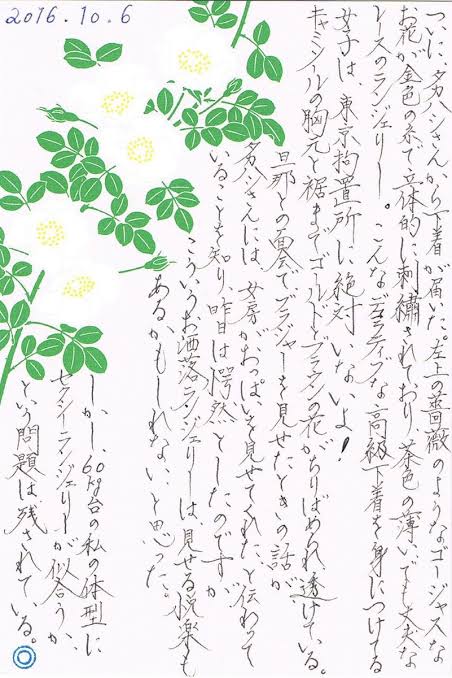 2016.10.6
ついに、タカハシさんから下着が届いた。左上の薔薇のようなゴージャスな
お花が金色の糸で立体的に刺繍されており茶色の薄いでも丈夫な
レースのランジェリー。こんなデコラティブな高級下着を身につけてる
女子は、東京拘置所に絶対いないよ！
キャミソールの胸元と裾までゴールドとブラウンの花がちりばめられ透けている。
旦那との面会で、ブラジャーを見せたときの話が、
タカハシさんには、女房がおっぱいを見せてくれた、と伝わって
いることを知り、昨日は愕然としたのですが、
こういうお洒落ランジェリーは、見せる悦楽も
あるかもしれない、と思った。
しかし、60kg台の私の体型に
セクシーランジェリーが似合うか、
という問題は残されている。